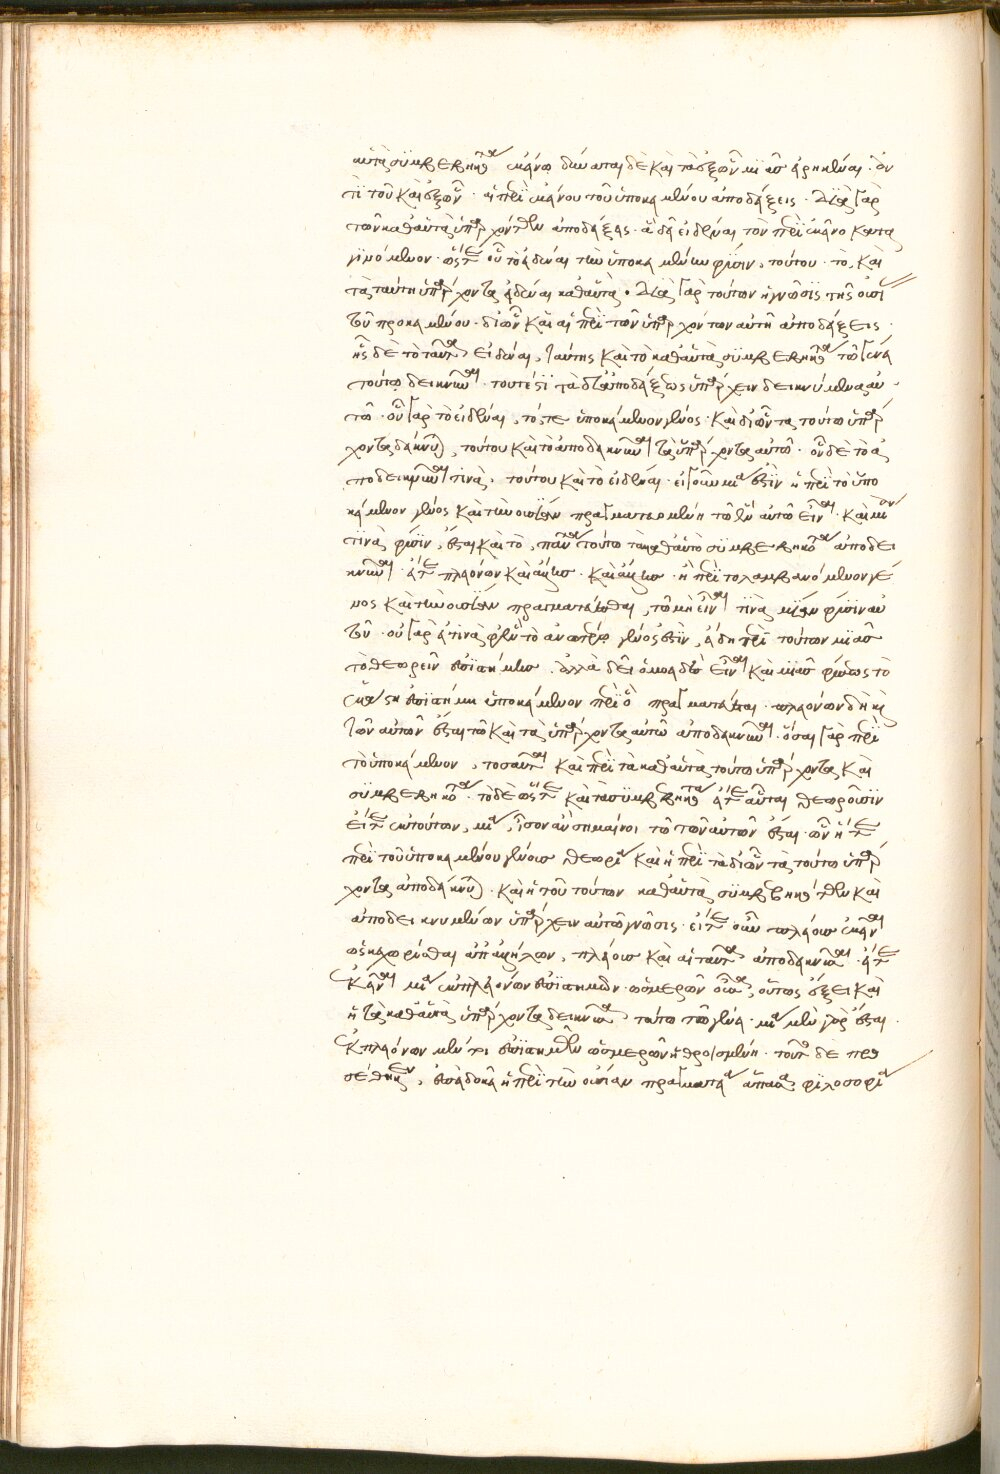 αὑτὰ συμβεβηκότα ἐκείνῳ δύναται δὲ καὶ τὸ ἐξ ὧν μιᾶς εἰρηκέναι ἀν
τὶ τοῦ καὶ ἐξ ὧν · αἱ περὶ ἐκείνου τοῦ ὑποκειμένου ἀποδείξεις · διὰ γὰρ
τῶν καθ' αὑτὰ ὑπαρχόντων ἀποδείξας · ἃ δεῖ εἰδέναι τὸν περὶ ἐκεῖνο κατα
γινόμενον · ὥστε οὗ τὸ εἰδέναι τὴν ὑποκειμένην φύσιν, τούτου · τὸ, καὶ
τὰ ταύτῃ ὑπάρχοντα εἰδέναι καθ' αὑτά · διὰ γὰρ τούτων ἡ γνῶσις τῆς οὐσί
τοῦ προκειμένου · δι' ὧν καὶ αἱ περὶ τῶν ὑπαρχόντων αὐτῇ ἀποδείξεις ·
ἧς δὲ τὸ ταῦτα εἰδέναι, ταύτης καὶ τὸ καθ' αὑτὰ συμβεβηκότα τῷ γένει
τούτῳ δεικνύναι · τουτέστι τὰ δι' ἀποδείξεως ὑπάρχειν δεικνύμενα αὐ
τῷ · οὗ γὰρ τὸ εἰδέναι, τό τε ὑποκείμενον γένος · καὶ δι' ὧν τὰ τούτῳ ὑπάρ
χοντα δείκνυται, τούτου καὶ τὸ ἀποδεικνύναι τὰ ὑπάρχοντα αὐτῷ · οὗ δὲ τὸ ἀ
ποδεικνύναι τινὰ, τούτου καὶ τὸ εἰδέναι · εἰ γοῦν μία ἐστὶν ἡ περὶ τὸ ὑπο
κείμενον γένος καὶ τὴν οὐσίαν πραγματευομένη τῷ ἓν αὐτῷ εἶναι · καὶ μίαν
τινὰ φύσιν, ἔσται καὶ τὸ, πάντα τούτῳ τὰ καθ' αὑτὸ συμβεβηκότα ἀποδει
κνύναι · εἴτε πλειόνων καὶ ἄλλης · καὶ ἄλλης · ἡ περὶ τὸ λαμβανόμενον γέ
νος καὶ τὴν οὐσίαν πραγματεύεσθαι, τῷ μὴ εἶναι τινὰ μίαν φύσιν αὐ
τοῦ · οὐ γὰρ εἴ τινα φέρει τὸ ἀνωτέρω γένος ἐστὶν, ἤδη περὶ τούτων μιᾶς
τὸ θεωρεῖν ἐπιστήμης · ἀλλὰ δεῖ ὁμοειδὲς εἶναι καὶ μιᾶς φύσεως τὸ
ἑκάστῃ ἐπιστήμῃ ὑποκείμενον περὶ ὃ πραγματεύεται · πλειόνων δὴ καὶ
τῶν αὐτῶν ἔσται τῷ καὶ τὰ ὑπάρχοντα αὐτῷ ἀποδεικνύναι · ὅσαι γὰρ περὶ
τὸ ὑποκείμενον, τοσαῦται καὶ περὶ τὰ καθ' αὑτὰ τούτῳ ὑπάρχοντα καὶ
συμβεβηκότα · τὸ δὲ ὥστε καὶ τὰ συμβεβηκότα εἴτε αὗται θεωροῦσιν
εἴτε ἐκ τούτων, μία, ἴσον ἂν σημαίνοι τῷ τῶν αὐτῶν ἔσται · ὧν ἥ τε
περὶ τοῦ ὑποκειμένου γένους θεωρία καὶ ἡ περὶ τὰ δι' ὧν τὰ τούτῳ ὑπάρ
χοντα ἀποδείκνυται · καὶ ἡ τοῦ τούτων καθ' αὑτὰ συμβεβηκότων καὶ
ἀποδεικνυμένων ὑπάρχειν αὐτῷ γνῶσις · εἴτε οὖν πλείους ἐκεῖναι
ὡς κεχωρίσθαι ἀπ' ἀλλήλων, πλείους καὶ αἱ ταῦτα ἀποδεικνῦσαι · εἴτε
ἐκεῖναι μία ἐκ πλειόνων ἐπιστημῶν · ὡς μερῶν οὖσα, οὕτως ἕξει καὶ
ἡ τὰ καθ' αὑτὰ ὑπάρχοντα δεικνῦσα τούτῳ τῷ γένει · μία μὲν γὰρ ἔσται ·
ἐκ πλειόνων μέντοι ἐπιστημῶν ὡς μερῶν ἠθροισμένη · τοῦτο δὲ προ
σέθηκεν, ἐπεὶ δοκεῖ ἡ περὶ τὴν οὐσίαν πραγματεία ἅπασα φιλοσοφία